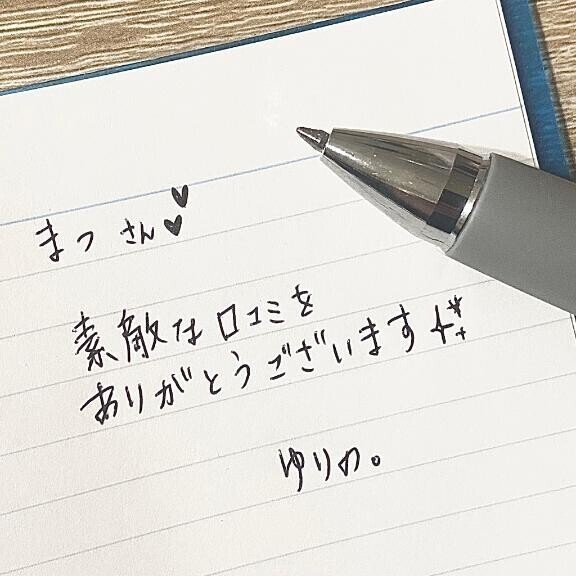 まつ さん♥♥
素敵な口コミを
ありがとうございます✨
ゆりの。